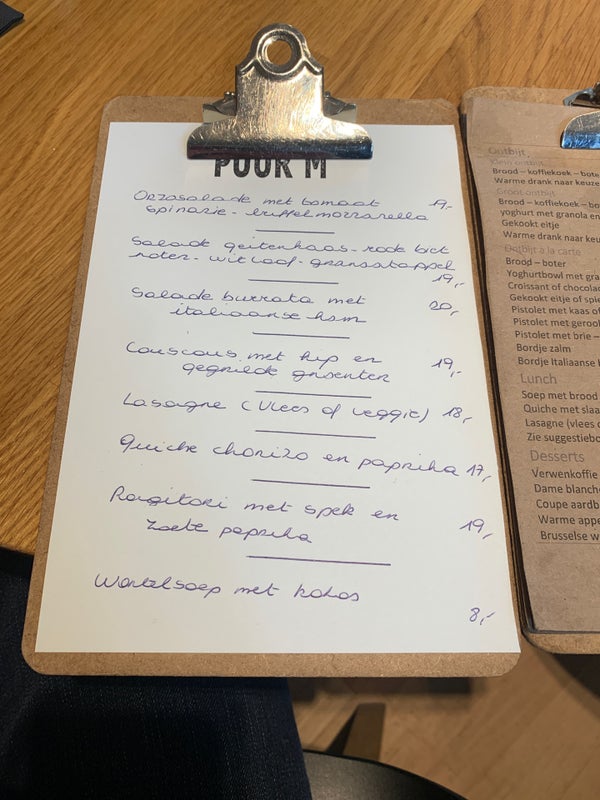 POUR M
Orzosalade met tomaat 19,-
spinazie - buffelmozzarella
Salade geitenkaas - rode biet
noten - witloof - granaatappel
19,-
Salade burrata met 20,-
italiaanse ham
Couscous met kip en 19,-
gegrilde groenten
Lasagne (vlees of veggie) 18,-
Quiche chorizo en paprika 17,-
Rigatoni met spek en
zoete paprika 19,-
Wortelsoep met kokos
8,-
Ontbijt
Klein ontbijt
Brood – koffiekoek – bote
Warme drank naar keuze
Groot ontbijt
Brood – koffiekoek – bo
yoghurt met granola en
Gekookt eitje
Warme drank naar keu
Ontbijt à la carte
Brood – boter
Yoghurtbowl met gra
Croissant of chocolad
Gekookt eitje of spie
Pistolet met kaas of
Pistolet met gerool
Pistolet met brie –
Bordje zalm
Bordje Italiaanse
Lunch
Soep met brood
Quiche met slaa
Lasagna (vlees o
Zie suggestiebo
Desserts
Verwenkoffie
Dame blanch
Coupe aardb
Warme appe
Brusselse w